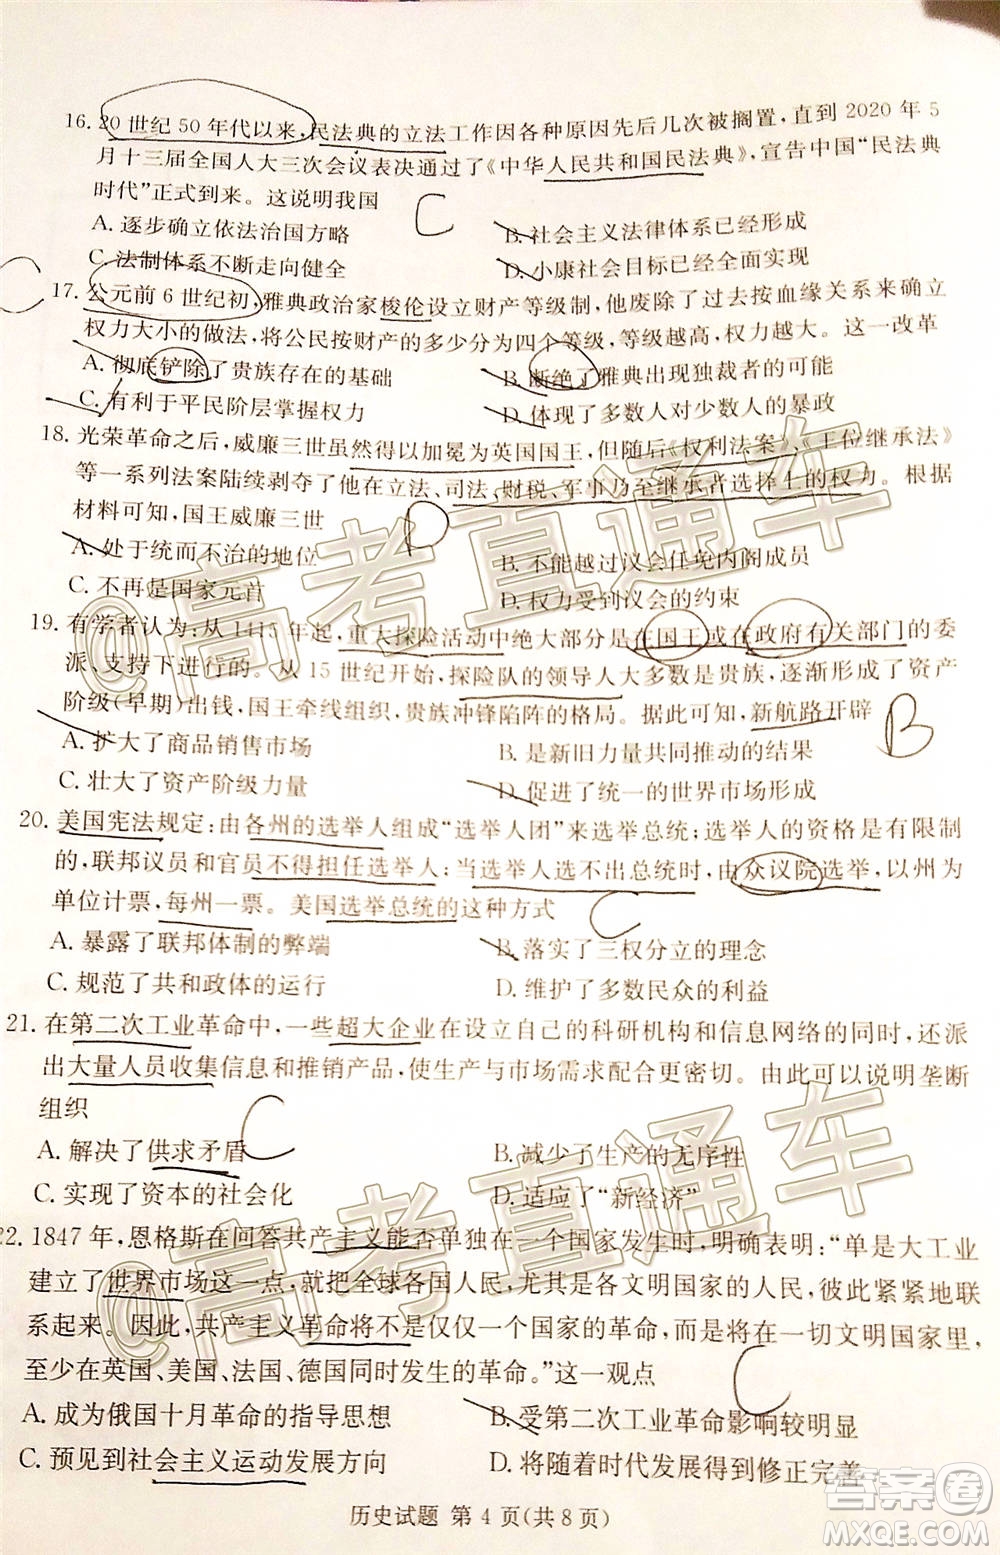 16. 20世纪50年代以来,民法典的立法工作因各种原因先后几次被搁置,直到2020年5
月十三届全国人大三次会议表决通过了《中华人民共和国民法典》,宣告中国“民法典
时代”正式到来。这说明我国 C
A. 逐步确立依法治国方略 B. 社会主义法律体系已经形成
C. 法制体系不断走向健全 D. 小康社会目标已经全面实现
C
17. 公元前6世纪初,雅典政治家梭伦设立财产等级制,他废除了过去按血缘关系来确定
权力大小的做法,将公民按财产的多少分为四个等级,等级越高,权力越大。这一改革
A. 彻底铲除了贵族存在的基础 B. 断绝了雅典出现独裁者的可能
C. 有利于平民阶层掌握权力 D. 体现了多数人对少数人的暴政
18. 光荣革命之后,威廉三世虽然得以加冕为英国国王,但随后《权利法案》《王位继承法》
等一系列法案陆续剥夺了他在立法、司法、财税、军事乃至继承者选择上的权力。根据
材料可知,国王威廉三世 D
A. 处于统而不治的地位 B. 不能越过议会任免内阁成员
C. 不再是国家元首 D. 权力受到议会的约束
19. 有学者认为:从1415年起,重大探险活动中绝大部分是在国王或在政府有关部门的委
派、支持下进行的。从15世纪开始,探险队的领导人大多数是贵族,逐渐形成了资产
阶级(早期)出钱,国王牵线组织,贵族冲锋陷阵的格局。据此可知,新航路开辟 B
A. 扩大了商品销售市场 B. 是新旧力量共同推动的结果
C. 壮大了资产阶级力量 D. 促进了统一的世界市场形成
20. 美国宪法规定:由各州的选举人组成“选举人团”来选举总统;选举人的资格是有限制
的,联邦议员和官员不得担任选举人;当选举人选不出总统时,由众议院选举,以州为
单位计票,每州一票。美国选举总统的这种方式 C
A. 暴露了联邦体制的弊端 B. 落实了三权分立的理念
C. 规范了共和政体的运行 D. 维护了多数民众的利益
21. 在第二次工业革命中,一些超大企业在设立自己的科研机构和信息网络的同时,还派
出大量人员收集信息和推销产品,使生产与市场需求配合更密切。由此可以说明垄断
组织 C
A. 解决了供求矛盾 B. 减少了生产的无序性
C. 实现了资本的社会化 D. 适应了“新经济”
22. 1847年,恩格斯在回答共产主义能否单独在一个国家发生时,明确表明:“单是大工业
建立了世界市场这一点,就把全球各国人民,尤其是各文明国家的人民,彼此紧紧地联
系起来。因此,共产主义革命将不是仅仅一个国家的革命,而是将在一切文明国家里,
至少在英国、美国、法国、德国同时发生的革命。”这一观点 C
A. 成为俄国十月革命的指导思想 B. 受第二次工业革命影响较明显
C. 预见到社会主义运动的发展 D. 随着时代发展得到修正完善
历史试题 第4页(共8页)
@高考直通车
@高考直通车
答案卷
MXQE.COM